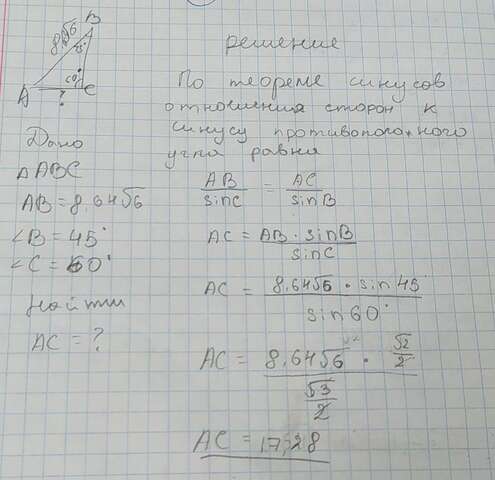 B
8,√6
45°
60°
A
?
C
Дано
△ABC
AB = 8,64√6
∠B = 45°
∠C = 60°
Найти
AC = ?
Решение
По теореме синусов
отношения сторон к
синусу противоположного
угла равны
AB/sinC = AC/sinB
AC = AB · sinB/sinC
AC = 8,64√6 · sin45°/sin60°
AC = 8,64√6 · √2/2 / √3/2
AC = 17,28